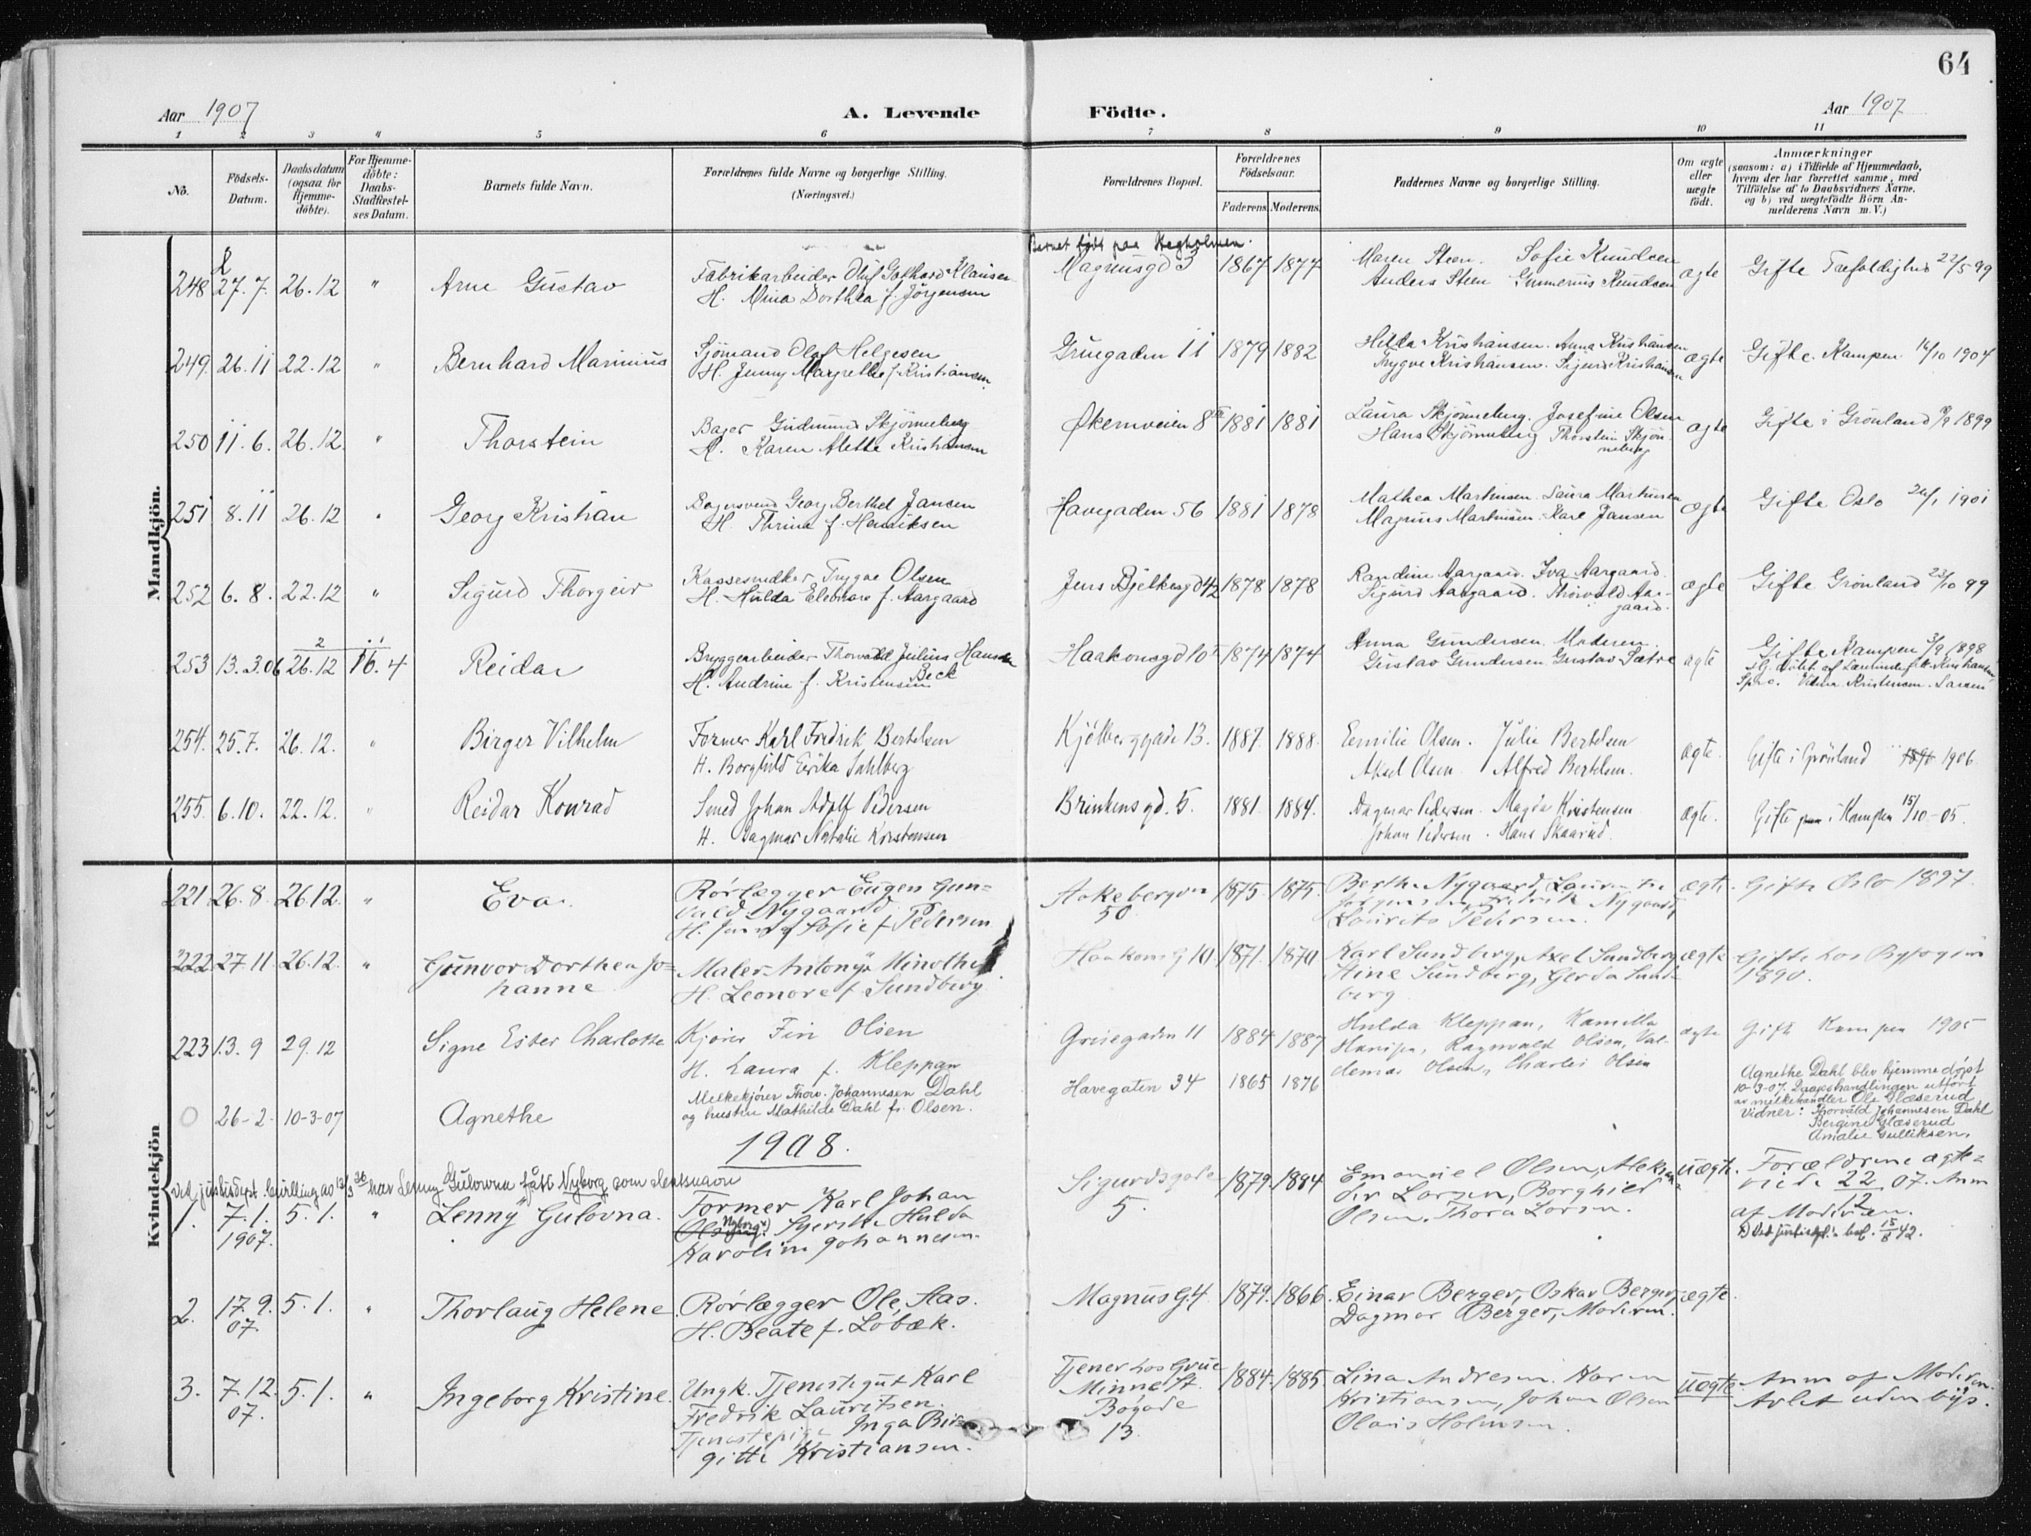 64
Aar 1907 A. Levende Födte. Aar 1907
1 2 3 4 5 6 7 8 9 10 11
No. Födsels-Datum. Daabsdatum (ogsaa for Hjemme-döbte). For Hjemme-döbte: Daabs-Stadfæstel-ses Datum. Barnets fulde Navn. Forældrenes fulde Navne og borgerlige Stilling. (Næringsvei.) Forældrenes Bopæl. Forældrenes Födselsaar. Faderens. Moderens. Faddernes Navne og borgerlige Stilling. Om ægte eller uægte födt. Anmærkninger (saasom: a) i Tilfælde af Hjemmedaab, hvem der har forrettet samme, med Tilföielse af to Daabsvidners Navne, og b) ved uægtefödte Börn An-melderens Navn m. V.)
Mandkjön.
Barnet født paa
248 27.7. 26.12 " Arne Gustav Fabrikarbeider Oluf Gothard Klausen Magnusgd 3 1867 1877 Maren Steen. Sofie Knudsen ægte Gifte Trefoldighed 22/5 99
H. Mina Dorthea f. Jørgensen Anders Steen Gunnerius Knudsen
249. 26.11 22.12 " Bernhard Marinius Sjömand Olaf Helgesen Grüegaden 11 1879 1882 Hilda Kristiansen. Anna Kristiansen ægte Gifte. Kampen 16/10 1904
H. Jenny Margrethe f. Kristiansen. Trygve Kristiansen. Sigurd Kristiansen
250 11.6. 26.12. " Thorstein Bager Gudmund Skjönneberg Økernveien 8 1881 1881 Laura Skjönneberg. Josefine Olsen ægte Gifte i Grönland 1899
H. Karen Alette Kristiansen Hans Skjönneberg Thorstein Skjön-
neberg
251 8.11 26.12 " Georg Kristian Bagersvend Georg Berthel Jansen Havegaden 56 1881 1878 Mathea Martinsen. Laura Martinsen ægte Gifte Oslo 26/1 1901
H. Thrine f. Henriksen Magnus Martinsen. Karl Jansen
252 6.8. 22.12 " Sigurd Thorgeir Kassesnedker Trygve Olsen Jens Bjelkesgd 42 1878 1878 Randine Aargaard. Iva Aargaard. ægte Gifte Grönland 23/10 99
H. Hulda Eleonore f. Aargaard Sigurd Aargaard. Thorvald Aar-
gaard.
253 13.3.06 26.12 16.4 Reidar Bryggearbeider Thorvald Julius Hansen Haakonsgd 10 1874 1874 Anna Gundersen. Moderen. ægte Gifte Kampen 3/9 1898
Beck
H. Andrine f. Kristensen Gustav Gundersen Gustav Sætre
254. 25.7. 26.12. " Birger Vilhelm Former Karl Fredrik Bertelsen Kjölberggade 13. 1887. 1888. Emilie Olsen. Julie Bertelsen ægte. Gifte i Grönland 1906.
H. Borghild Erika Dahlberg Aksel Olsen. Alfred Bertelsen.
255. 6.10. 22.12. " Reidar Konrad Smed Johan Adolf Pedersen Brinkens gd. 5. 1881. 1884. Dagmar Pedersen. Magda Kristensen ægte. Gifte i Kampen 15/10-05.
H. Dagmar Natalie Kristensen Johan Pedersen. Hans Skaarud.
Kvindekjön
221 26.8. 26.12. " Eva. Rörlægger Eugen Gun= Aakebergvn 1875. 1875. Berthe Nygaard, ægte. Gifte Oslo 1897.
vald Nygaard 50 Jørgensen, Fredrik Nygaard,
H. Jenny Sofie f. Pedersen Laurits Pedersen.
222. 27.11 26.12. " Gunvor Dorthea Jo= Maler Antonio Haakons G 10. 1871. 1870 Karl Sundberg, Axel Sundberg ægte Gifte hos Byfogden
hanne H. Leonore f. Sundberg Stine Sundberg, Gerda Sund- 1890.
berg
223 13.9 29.12 Signe Ester Charlotte Kjörer Finn Olsen Grüegaden 11 1884 1887 Hulda Kleppan, Kamilla ægte Gift Kampen 1905
H. Laura f. Kleppan Hansen, Ragnvald Olsen, Val-
demar Olsen, Charles Olsen
0 26-2. 10-3-07 Agnethe Melkekjører Thorv. Johannesen Dahl Havegaten 34 1865 1876 Agnethe Dahl blev hjemmedøpt
og hustru Mathilde Dahl fr. Olsen. 10-3-07. Daapshandlingen utført
av melkehandler Ole Glæserud
Vidner: Thorvald Johannesen Dahl
Bergine Glæserud
Amalie Gulliksen.
1908.
Ved justisdept. bevilling av 13/3 36 har Lenny Gulovna fått Nyborg som slektsnavn
1. 7.1. 5.1. " Lenny Gulovna. Former Karl Johan Sigurdsgade 1879. 1884 Emanuel Olsen, Aleksan= uægte. Forældrene ægte=
1907. Olsen. Nyborg x) Syerske Hulda 5. der Larsen, Borghild viede 22/12 07. Anm
Karoline Johannesen. Olsen. Thora Larsen. af Moderen.
x) Ved justisdpt.s bev. 15/8 42.
2. 17.9. 5.1. " Thorlaug Helene. Rörlægger Ole Aas. Magnus G. 4 1879. 1866. Einar Berger, Oskar Berger, ægte.
07. H. Beate f. Lobæk. Dagmar Berger, Moderen.
3. 7.12. 5.1. " Ingeborg Kristine. Ungk. Tjenestegut Karl Tjener hos Grüe 1884. 1885. Lina Andresen. Karen uægte Anm af Moderen.
07. Fredrik Lauritsen. Minne St. Kristiansen, Johan Olsen Avlet udenbys.
Tjenestepige Inga Bir= Bogade Olais Holmsen.
gitte Kristiansen. 13.